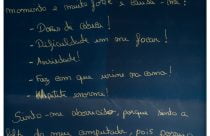 momento e muito forte e causa-me:
- Dores de cabeça!
- Dificuldade em me focar!
- Ansiedade!
- Faz com que urine na cama!
- Apetite enorme!
Sinto-me aborrecido, porque sinto a
falta do meu computador, pois